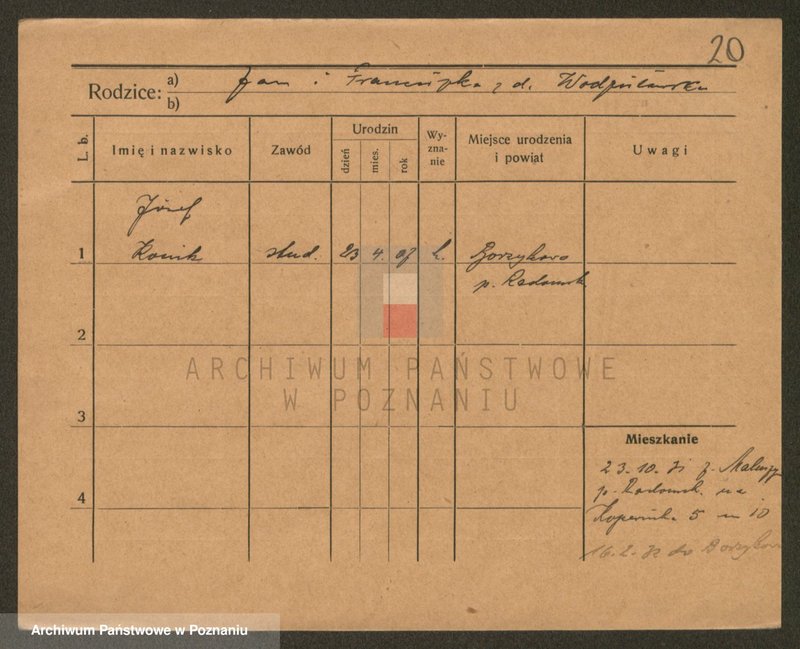 20
Rodzice: a) Jan i Franciszka z d.
b)
L. b. Imię i nazwisko Zawód Urodzin dzień mies. rok Wy-zna-nie Miejsce urodzenia i powiat Uwagi
Józef
1 Konik stud. 23 4. 07 k. Borzykowo
p. Radomsk
2
ARCHIWUM PAŃSTWOWE
W POZNANIU
3
Mieszkanie
23.10.31 z
4 p. Radomsk. na
Kopernika 5 m 10
16.2.32 do Borzykow
Archiwum Państwowe w Poznaniu